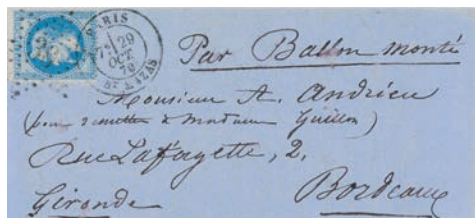 PARIS
29
OCT
70
ST LAZARE
Par Ballon monté
Monsieur A. Andrieu
(pour remettre à Madame Guillon)
Rue Lafayette, 2.
Gironde Bordeaux